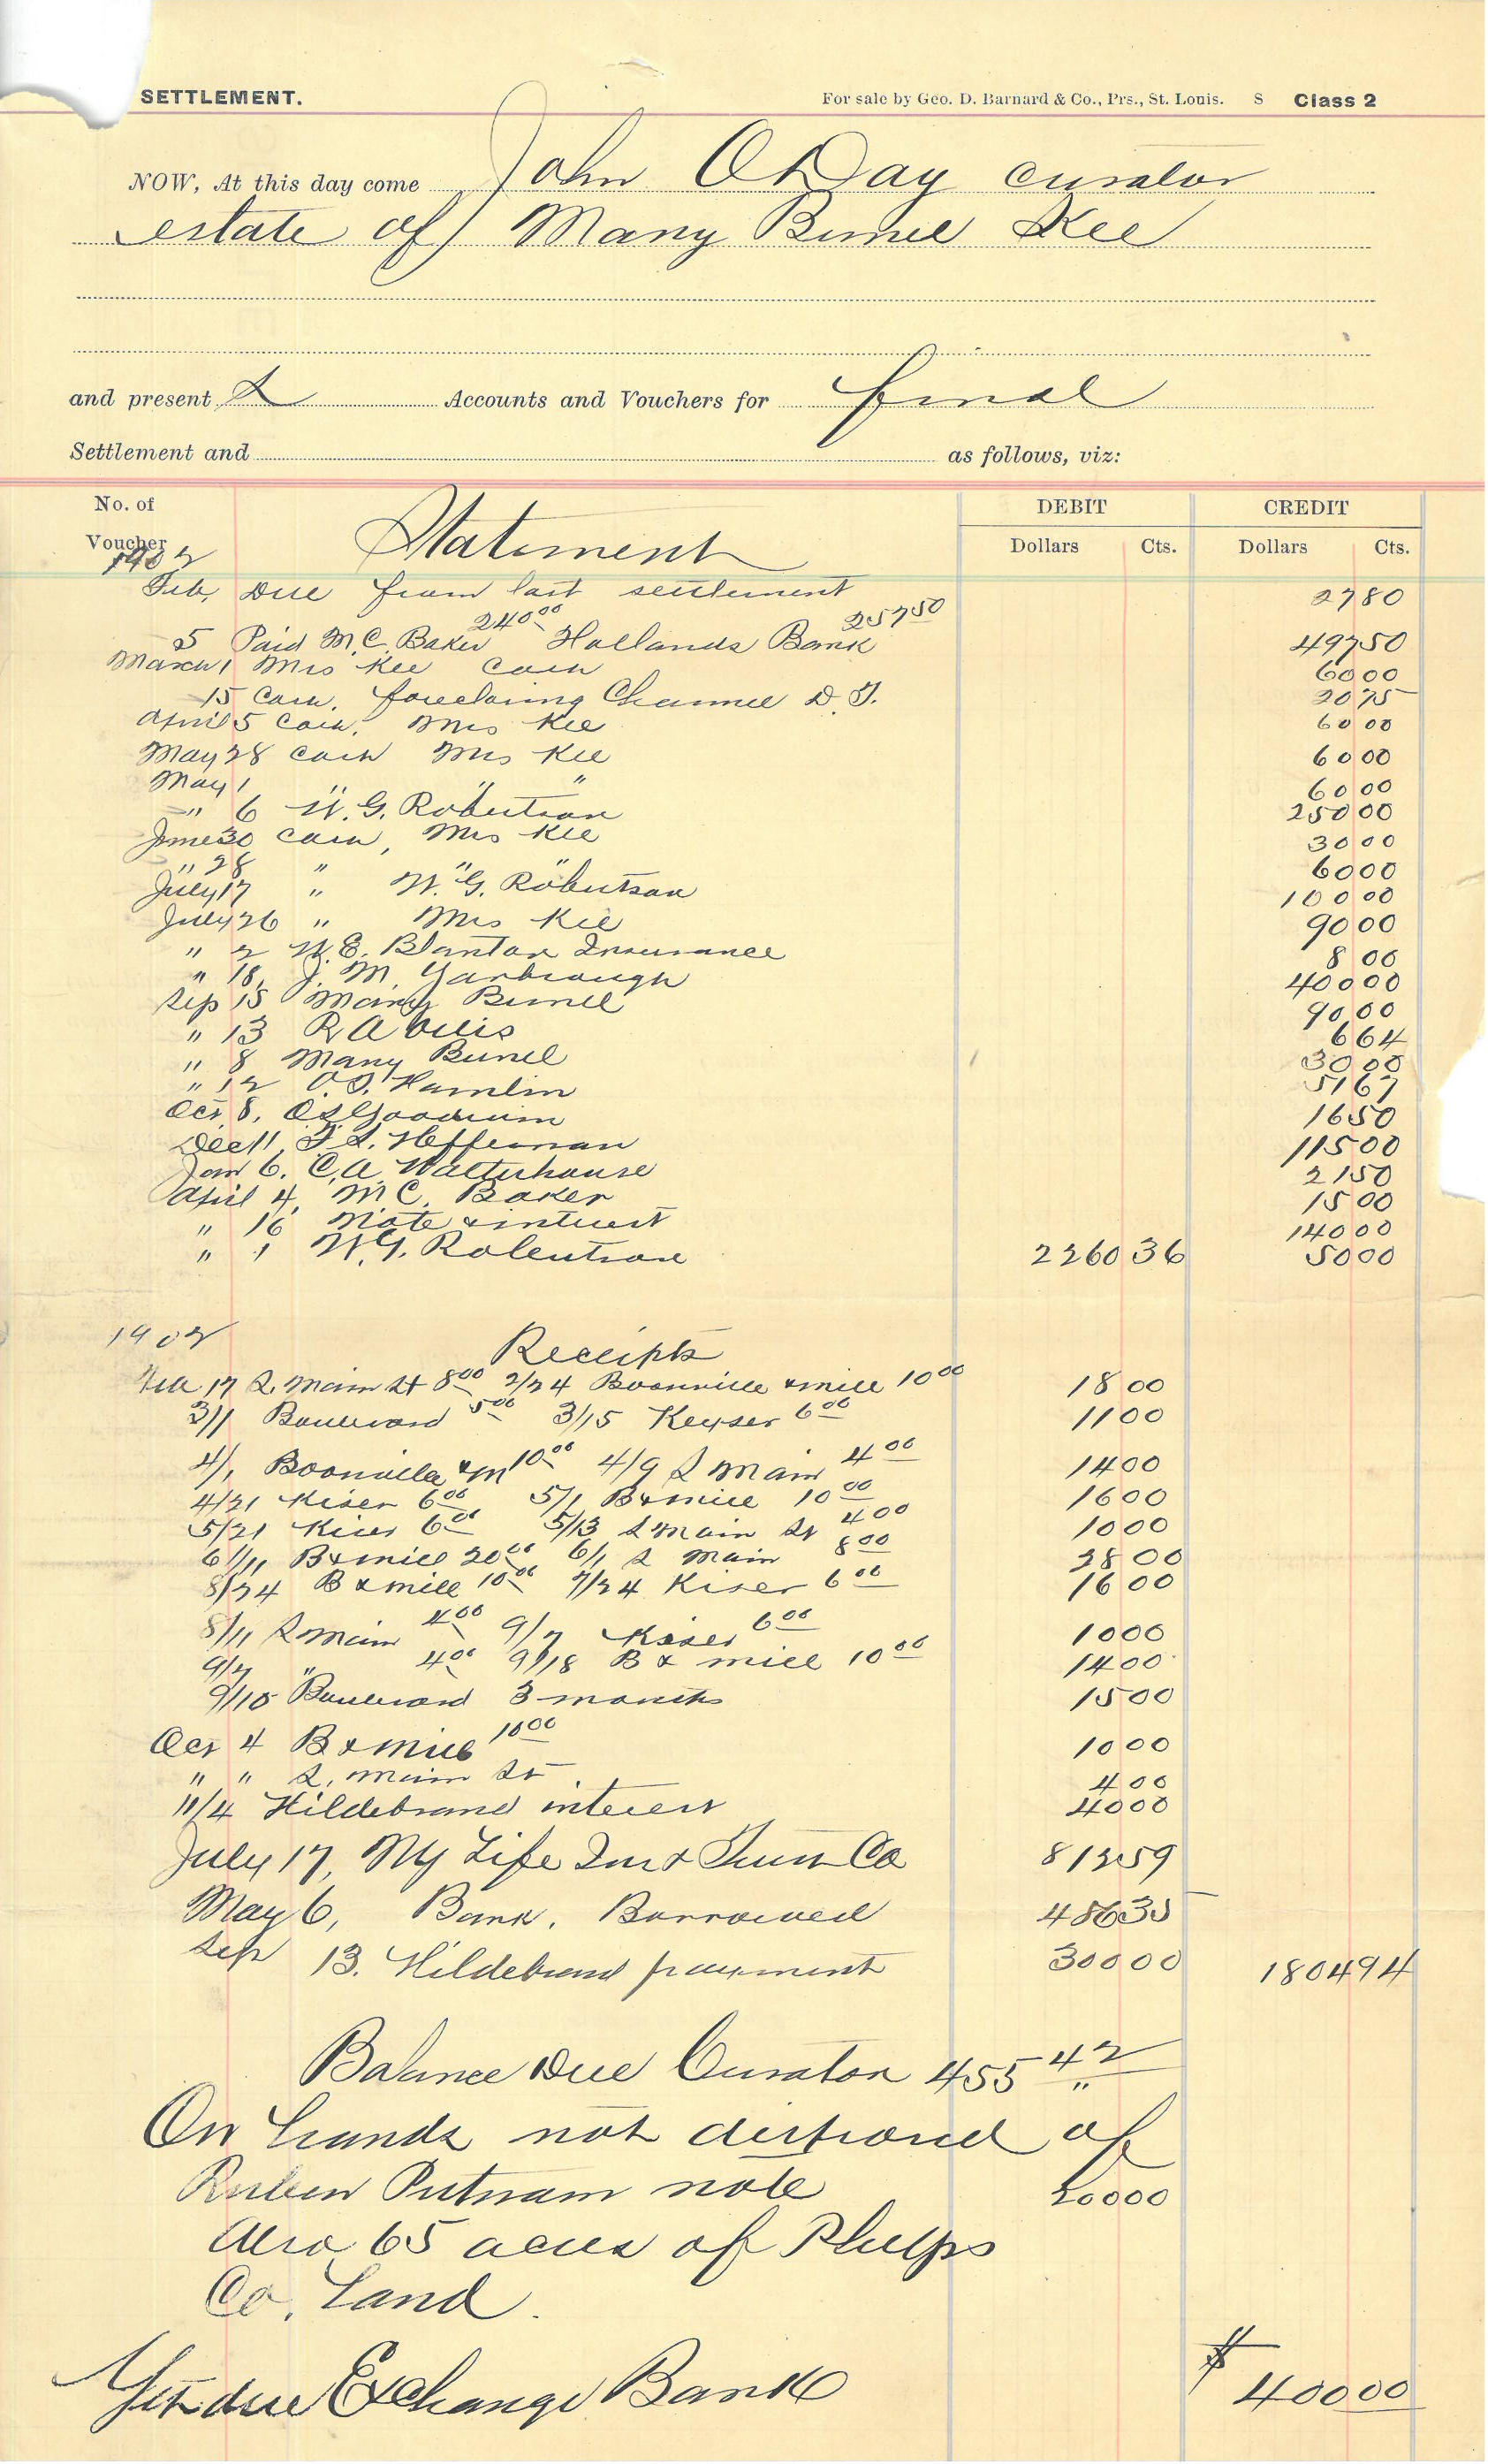 SETTLEMENT. For sale by Geo. D. Barnard & Co., Prs., St. Louis. S Class 2
NOW, At this day come John O Day curator
estate of Mary Bunel Kee
and present s Accounts and Vouchers for final
Settlement and as follows, viz:
No. of Voucher Statement DEBIT CREDIT
1902 Dollars Cts. Dollars Cts.
Feb, Due from last settlement 27 80
5 Paid M. C. Baker 240 00 Hollands Bank 257 50 497 50
March 1 Mrs Kee Cash 60 00
15 Cash, foreclosing D. T. 20 75
April 5 Cash, Mrs Kee 60 00
May 28 Cash Mrs Kee 60 00
May 1 " " " 60 00
" 6 W. G. Robertson 250 00
June 30 Cash, Mrs Kee 30 00
" 28 " " " 60 00
July 17 " W. G. Robertson 100 00
July 26 " Mrs Kee 90 00
" 2 W. E. Blanton Insurance 8 00
" 18, J. M. Yarbrough 400 00
Sep 15 Mary Bunel 90 00
" 13 R A 6 64
" 8 Mary Bunel 30 00
" 12 O. T. Hamlin 51 67
Oct 8, 16 50
Dec 11, T. S. Heffernan 115 00
Jan 6. C, A. Watterhouse 21 50
April 4, M C. Baker 15 00
" 16 Note & interest 140 00
" 1 W. G. Robertson 2260 36 50 00
1902
Receipts
Feb 17 S. Main St 8 00 2/24 Boonville & mill 10 00 18 00
3/1 Boulevard 5 00 3/15 Keyser 6 00 11 00
4/1 Boonville & M 10 00 4/9 S Main 4 00 14 00
4/21 Kiser 6 00 5/1 B & mill 10 00 16 00
5/21 Kiser 6 00 5/13 S Main St 4 00 10 00
6/11 B & mill 20 00 6/1 S Main 8 00 28 00
8/24 B & mill 10 00 7/24 Kiser 6 00 16 00
8/11 S Main 4 00 9/7 Kiser 6 00 10 00
9/7 " 4 00 9/18 B & mill 10 00 14 00
9/15 Boulevard 3 months 15 00
Oct 4 B & Mill 10 00 10 00
" " S. Main St 4 00
11/4 Hildebrand interest 40 00
July 17, NY Life Ins & Trust Co 812 59
May 6, Bank, Borrowed 486 35
Sep 13. Hildebrand payment 300 00 1804 94
Balance Due Curator 455 42
On hands not disposed of
Ruben Putnam note 200 00
Also 65 acres of Phelps
Co. Land.
Yet due Exchange Bank $ 400 00